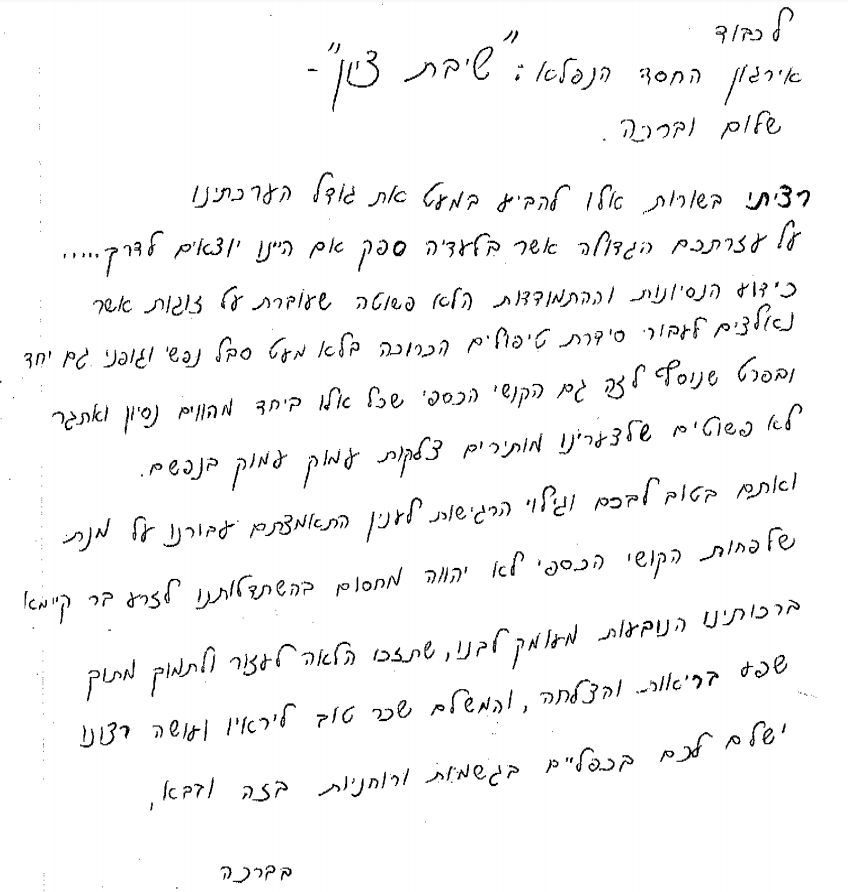 לכבוד
אירגון החסד הנפלא: "שיבת ציון"-
שלום וברכה.
רציתי בשורות אלו להביע במעט את גודל הערכתינו
על עזרתכם הגדולה אשר בלעדיה ספק אם היינו יוצאים לדרך.....
כידוע הנסיונות וההתמודדות הלא פשוטה שעוברת על זוגות אשר
נאלצים לעבור סידרת טיפולים הכרוכה בלא מעט סבל נפשי וגופני גם יחד
ובפרט שנוסף לזה גם הקושי הכספי שכל אלו ביחד מהווים נסיון ואתגר
לא פשוטים שלצערינו מותירים צלקות עמוק עמוק בנפשם.
ואתם בטוב לבכם וגילוי הרגישות לענין התאמצתם עבורנו על מנת
שלפחות הקושי הכספי לא יהווה מחסום בהשתדלותנו לזרע בר קיימא
ברכותינו הנובעות מעומק לבנו, שתזכו הלאה לעזור ולתמוך מתוך
שפע בריאות והצלחה, והמשלם שכר טוב ליראיו ועושה רצונו
ישלם לכם בכפליים בגשמיות ורוחניות בזה ובבא,
בברכה